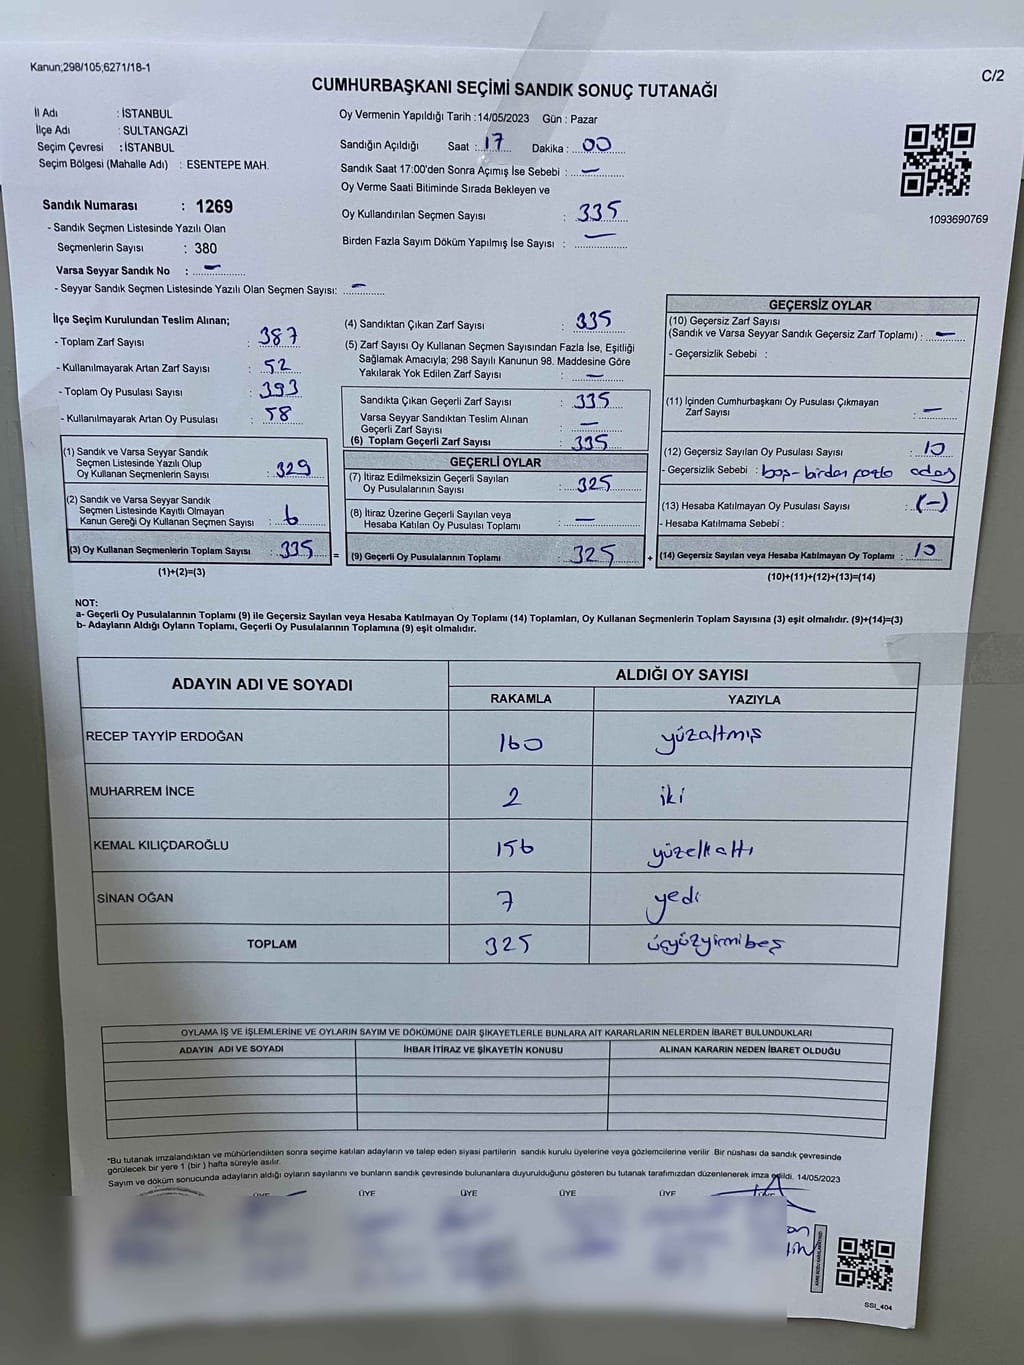 Kanun;298/105,6271/18-1
C/2
CUMHURBAŞKANI SEÇİMİ SANDIK SONUÇ TUTANAĞI
İl Adı : İSTANBUL
İlçe Adı : SULTANGAZİ
Seçim Çevresi : İSTANBUL
Seçim Bölgesi (Mahalle Adı) : ESENTEPE MAH.
Sandık Numarası : 1269
- Sandık Seçmen Listesinde Yazılı Olan
Seçmenlerin Sayısı : 380
Varsa Seyyar Sandık No : —
- Seyyar Sandık Seçmen Listesinde Yazılı Olan Seçmen Sayısı: —
Oy Vermenin Yapıldığı Tarih : 14/05/2023 Gün : Pazar
Sandığın Açıldığı Saat : 17 Dakika : 00
Sandık Saat 17:00'den Sonra Açımış İse Sebebi : —
Oy Verme Saati Bitiminde Sırada Bekleyen ve
Oy Kullandırılan Seçmen Sayısı : 335
Birden Fazla Sayım Döküm Yapılmış İse Sayısı : —
1093690769
İlçe Seçim Kurulundan Teslim Alınan;
- Toplam Zarf Sayısı : 387
- Kullanılmayarak Artan Zarf Sayısı : 52
- Toplam Oy Pusulası Sayısı : 393
- Kullanılmayarak Artan Oy Pusulası : 58
(1) Sandık ve Varsa Seyyar Sandık
Seçmen Listesinde Yazılı Olup
Oy Kullanan Seçmenlerin Sayısı : 329
(2) Sandık ve Varsa Seyyar Sandık
Seçmen Listesinde Kayıtlı Olmayan
Kanun Gereği Oy Kullanan Seçmen Sayısı : 6
(3) Oy Kullanan Seçmenlerin Toplam Sayısı : 335 =
(1)+(2)=(3)
(4) Sandıktan Çıkan Zarf Sayısı : 335
(5) Zarf Sayısı Oy Kullanan Seçmen Sayısından Fazla İse, Eşitliği
Sağlamak Amacıyla; 298 Sayılı Kanunun 98. Maddesine Göre
Yakılarak Yok Edilen Zarf Sayısı : —
Sandıkta Çıkan Geçerli Zarf Sayısı : 335
Varsa Seyyar Sandıktan Teslim Alınan
Geçerli Zarf Sayısı : —
(6) Toplam Geçerli Zarf Sayısı : 335
GEÇERLİ OYLAR
(7) İtiraz Edilmeksizin Geçerli Sayılan
Oy Pusulalarının Sayısı : 325
(8) İtiraz Üzerine Geçerli Sayılan veya
Hesaba Katılan Oy Pusulası Toplamı : —
(9) Geçerli Oy Pusulalarının Toplamı : 325 +
GEÇERSİZ OYLAR
(10) Geçersiz Zarf Sayısı
(Sandık ve Varsa Seyyar Sandık Geçersiz Zarf Toplamı) : —
- Geçersizlik Sebebi :
(11) İçinden Cumhurbaşkanı Oy Pusulası Çıkmayan
Zarf Sayısı : —
(12) Geçersiz Sayılan Oy Pusulası Sayısı : 10
- Geçersizlik Sebebi : boş-birden fazla aday
(13) Hesaba Katılmayan Oy Pusulası Sayısı : (-)
- Hesaba Katılmama Sebebi :
(14) Geçersiz Sayılan veya Hesaba Katılmayan Oy Toplamı : 10
(10)+(11)+(12)+(13)=(14)
NOT:
a- Geçerli Oy Pusulalarının Toplamı (9) ile Geçersiz Sayılan veya Hesaba Katılmayan Oy Toplamı (14) Toplamları, Oy Kullanan Seçmenlerin Toplam Sayısına (3) eşit olmalıdır. (9)+(14)=(3)
b- Adayların Aldığı Oyların Toplamı, Geçerli Oy Pusulalarının Toplamına (9) eşit olmalıdır.
ADAYIN ADI VE SOYADI ALDIĞI OY SAYISI
RAKAMLA YAZIYLA
RECEP TAYYİP ERDOĞAN 160 yüzaltmış
MUHARREM İNCE 2 iki
KEMAL KILIÇDAROĞLU 156 yüzellialtı
SİNAN OĞAN 7 yedi
TOPLAM 325 üçyüzyirmibeş
OYLAMA İŞ VE İŞLEMLERİNE VE OYLARIN SAYIM VE DÖKÜMÜNE DAİR ŞİKAYETLERLE BUNLARA AİT KARARLARIN NELERDEN İBARET BULUNDUKLARI
ADAYIN ADI VE SOYADI İHBAR İTİRAZ VE ŞİKAYETİN KONUSU ALINAN KARARIN NEDEN İBARET OLDUĞU
*Bu tutanak imzalandıktan ve mühürlendikten sonra seçime katılan adayların ve talep eden siyasi partilerin sandık kurulu üyelerine veya gözlemcilerine verilir. Bir nüshası da sandık çevresinde
görülecek bir yere 1 (bir ) hafta süreyle asılır.
Sayım ve döküm sonucunda adayların aldığı oyların sayılarını ve bunların sandık çevresinde bulunanlara duyurulduğunu gösteren bu tutanak tarafımızdan düzenlenerek imza edildi. 14/05/2023
ÜYE ÜYE ÜYE ÜYE ÜYE
SSİ_404